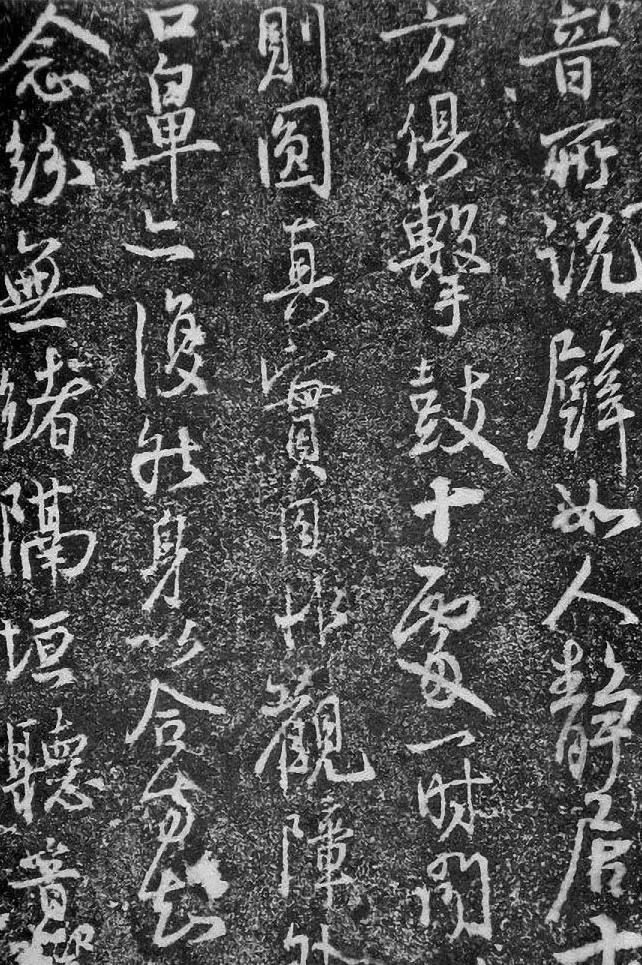 音所說譬如人靜居十
方俱擊鼓十處一時聞
則圓真實目非觀障外
口鼻亦復然身以合方知
念紛無緒隔垣聽音響